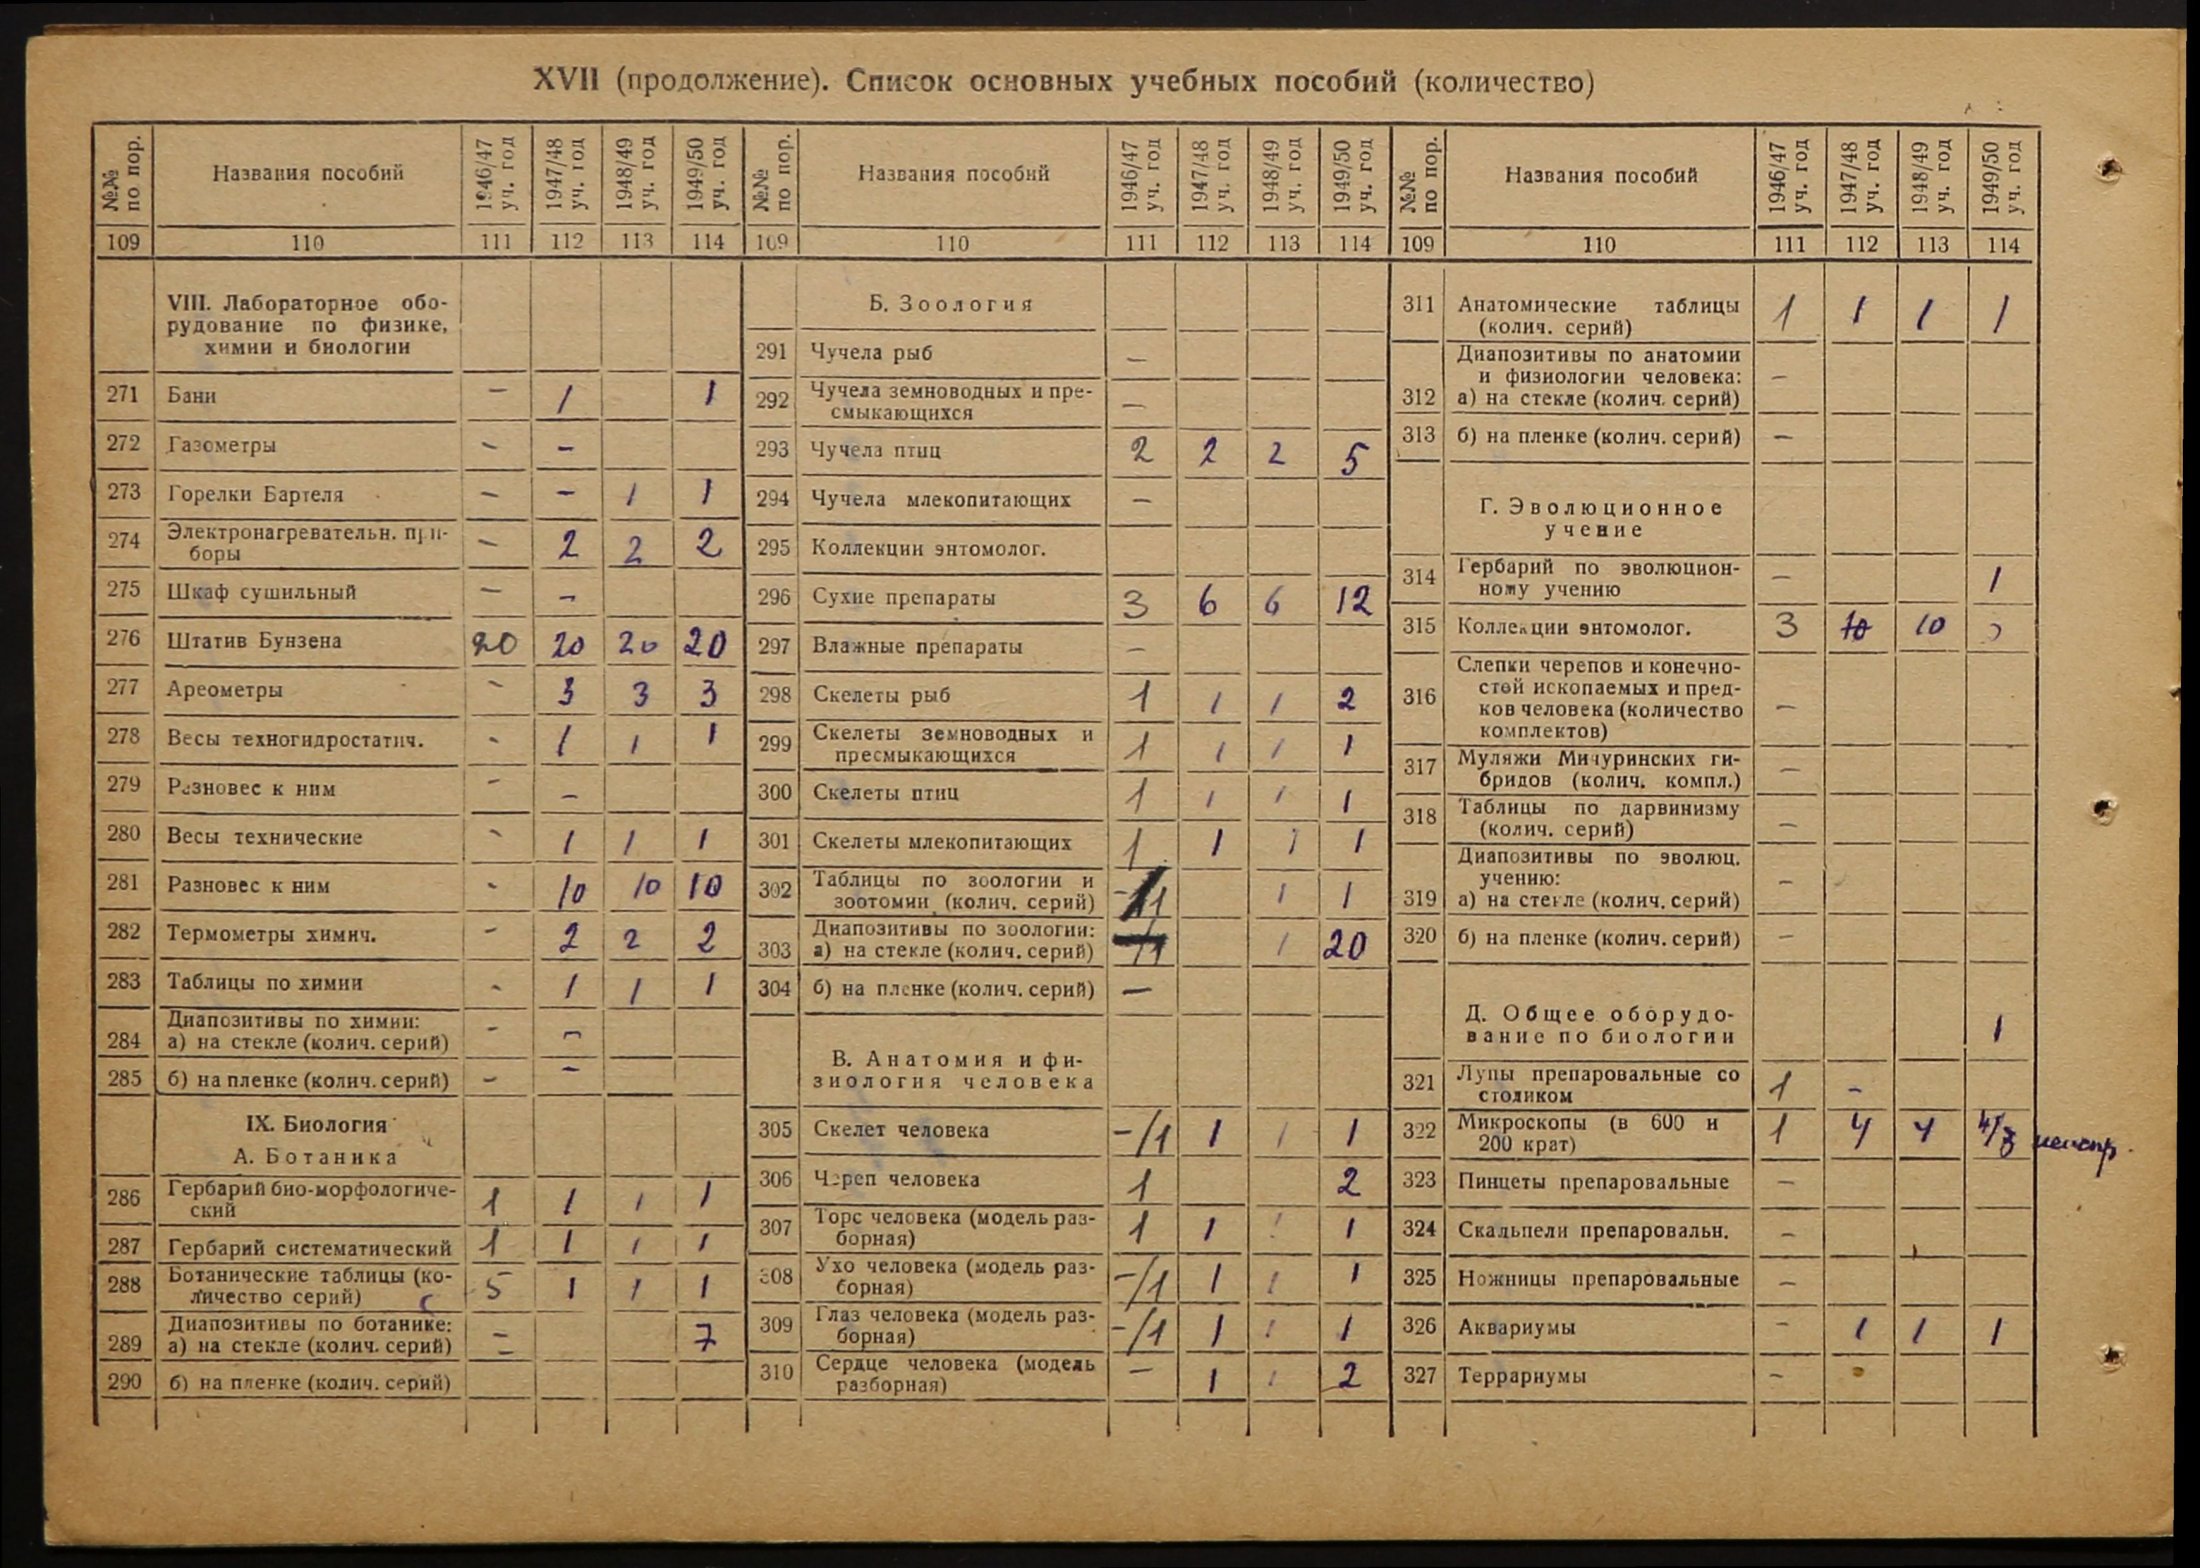 XVII (продолжение). Список основных учебных пособий (количество)
№№ по пор. Названия пособий 1946/47 уч. год 1947/48 уч. год 1948/49 уч. год 1949/50 уч. год
109 110 111 112 113 114
VIII. Лабораторное обо-
рудование по физике,
химии и биологии
271 Бани - 1 1
272 Газометры - -
273 Горелки Бартеля - - 1 1
274 Электронагревательн. при-
боры - 2 2 2
275 Шкаф сушильный - -
276 Штатив Бунзена 20 20 20 20
277 Ареометры - 3 3 3
278 Весы техногидростатич. - 1 1 1
279 Разновес к ним - -
280 Весы технические - 1 1 1
281 Разновес к ним - 10 10 10
282 Термометры химич. - 2 2 2
283 Таблицы по химии - 1 1 1
Диапозитивы по химии:
284 а) на стекле (колич. серий) - -
285 б) на пленке (колич. серий) - -
IX. Биология
А. Ботаника
286 Гербарий био-морфологиче-
ский 1 1 1 1
287 Гербарий систематический 1 1 1 1
288 Ботанические таблицы (ко-
личество серий) 5 1 1 1
Диапозитивы по ботанике:
289 а) на стекле (колич. серий) - 7
290 б) на пленке (колич. серий) -
№№ по пор. Названия пособий 1946/47 уч. год 1947/48 уч. год 1948/49 уч. год 1949/50 уч. год
109 110 111 112 113 114
Б. Зоология
291 Чучела рыб -
292 Чучела земноводных и пре-
смыкающихся -
293 Чучела птиц 2 2 2 5
294 Чучела млекопитающих -
295 Коллекции энтомолог.
296 Сухие препараты 3 6 6 12
297 Влажные препараты -
298 Скелеты рыб 1 1 1 2
299 Скелеты земноводных и
пресмыкающихся 1 1 1 1
300 Скелеты птиц 1 1 1 1
301 Скелеты млекопитающих 1 1 1 1
302 Таблицы по зоологии и
зоотомии (колич. серий) -/1 1 1
Диапозитивы по зоологии:
303 а) на стекле (колич. серий) -/1 1 20
304 б) на пленке (колич. серий) -
В. Анатомия и фи-
зиология человека
305 Скелет человека -/1 1 1 1
306 Череп человека 1 2
307 Торс человека (модель раз-
борная) 1 1 1 1
308 Ухо человека (модель раз-
борная) -/1 1 1 1
309 Глаз человека (модель раз-
борная) -/1 1 1 1
310 Сердце человека (модель
разборная) - 1 1 2
№№ по пор. Названия пособий 1946/47 уч. год 1947/48 уч. год 1948/49 уч. год 1949/50 уч. год
109 110 111 112 113 114
311 Анатомические таблицы
(колич. серий) 1 1 1 1
Диапозитивы по анатомии
и физиологии человека:
312 а) на стекле (колич. серий) -
313 б) на пленке (колич. серий) -
Г. Эволюционное
учение
314 Гербарий по эволюцион-
ному учению - 1
315 Коллекции энтомолог. 3 10 10
Слепки черепов и конечно-
316 стей ископаемых и пред-
ков человека (количество
комплектов) -
317 Муляжи Мичуринских ги-
бридов (колич. компл.) -
318 Таблицы по дарвинизму
(колич. серий) -
Диапозитивы по эволюц.
учению:
319 а) на стекле (колич. серий) -
320 б) на пленке (колич. серий) -
Д. Общее оборудо-
вание по биологии 1
321 Лупы препаровальные со
столиком 1 -
322 Микроскопы (в 600 и
200 крат) 1 4 4 4/3 неиспр.
323 Пинцеты препаровальные -
324 Скальпели препаровальн. -
325 Ножницы препаровальные -
326 Аквариумы - 1 1 1
327 Террариумы -